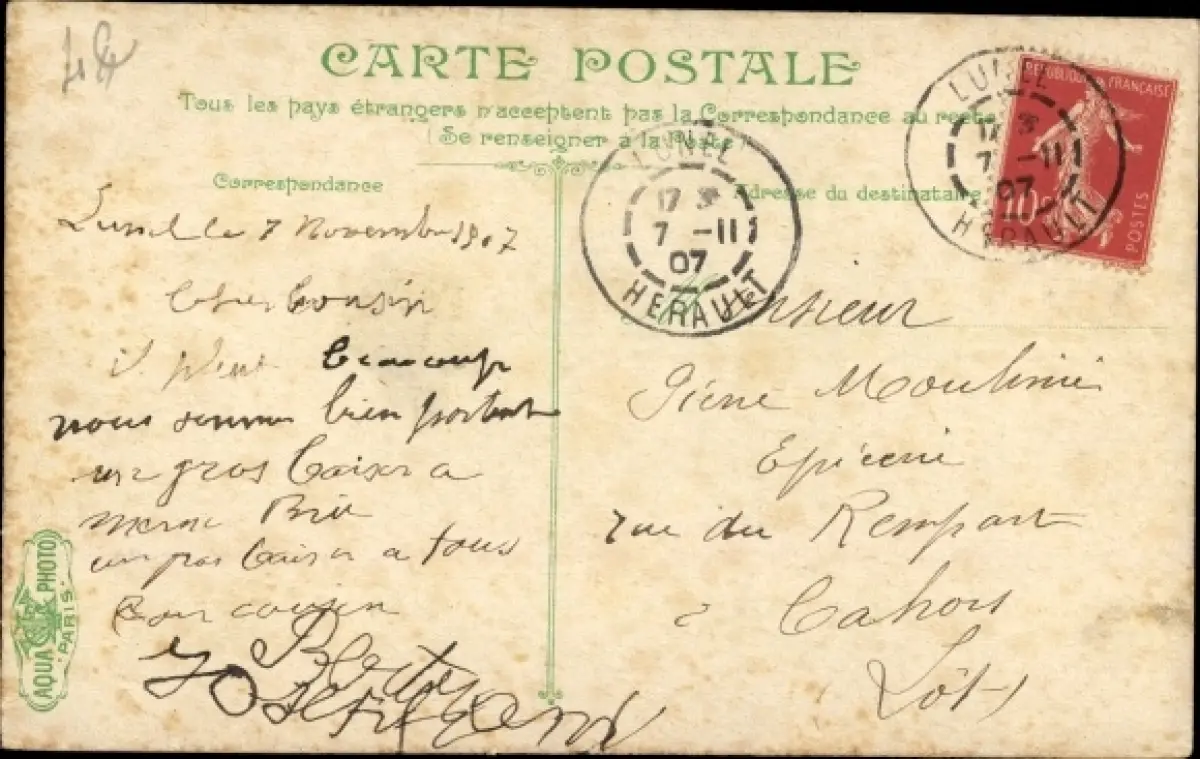 CARTE POSTALE
Tous les pays étrangers n'acceptent pas la Correspondance au recto
(Se renseigner à la Poste)
Correspondance
Adresse du destinataire
LUNEL
17
7 -11
07
HERAULT
LUNEL
17
7 -11
07
HERAULT
REPUBLIQUE FRANÇAISE
10c
POSTES
Lunel le 7 Novembre 1907
Cher Cousin
il pleut beaucoup
nous sommes bien portant
un gros baiser a
un gros baiser a tous
cousin
Monsieur
Moulinié
Epicerie
rue du Rempart
à Cahors
Lôt
AQUA PHOTO
PARIS